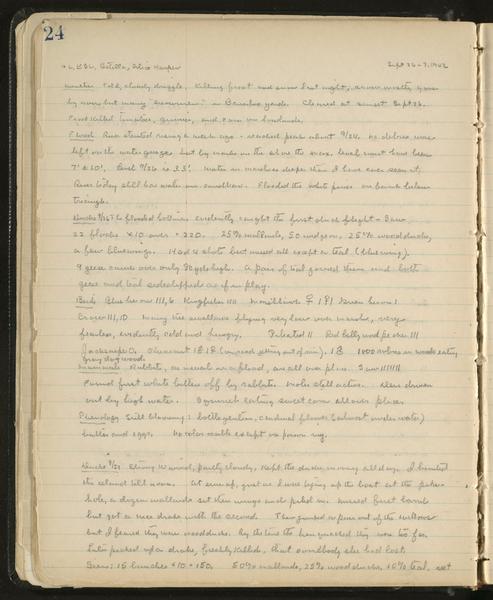 24
Estella, Alice Harper Sept 26-7, 1942
Weather Cold, cloudy, drizzle. Killing frost and snow last night, snow mostly gone
by noon but many "snowmen" in Baraboo yards. Cleared at sunset Sept 26.
Frost killed tomatoes, and corn on lowlands.
Flood River started rising a week ago - reached peak about 9/24. No debris was
left on the water gauge, but by marks on the the level must have been
7' 10". Level 9/26 is 2.5'. Water in marshes deeper than I have ever seen it.
River today still has water over sandbars. Flooded the white pines on bank below
triangle.
Ducks 9/26 to flooded bottoms evidently caught the first duck flight - Saw
22 flocks x 10 over = 220. 25% mallards, 50 widgeon, 25% woodducks,
a few bluewings. Had 4 shots but missed all except a teal (bluewing).
9 geese came over only 30 yds high. A pair of teal joined them and both
geese and teal sideslipped as if in play.
Birds Blue heron 111, 6 Kingfisher 1 Green heron 1
Crow 111, 10 Many tree swallows flying very low over marsh, very
fearless, evidently cold and hungry. Pileated 11 Red belly woodpecker 111
Jacksnipe Pheasant 18 (one seen sitting out of rain). 1000 robins in woods eating
gray dogwood
Mammals Rabbits, as usual in a flood, are all over place. Saw
Found first white butler off by rabbits. Mole still active. Deer driven
out by high water. Squirrel eating sweet corn all over place.
Phenology Still blooming: bottle gentian, cardinal flower (almost under water)
butter and eggs. No color in oaks except in poison ivy.
Ducks 9/27. Strong W wind, partly cloudy, kept the ducks moving all day. I hunted
the island till noon. At sunup, just as I was tying up the boat at the
hole, a dozen mallards set their wings and piled in. Missed first barrel
but got a nice drake with the second. Then jumped a pair out of the willows
but I feared they were woodducks. By the time the hen quacked they were too far.
Later picked up a drake, freshly killed, that somebody else had lost.
Seen: 15 bunches x 10 = 150. 50% mallards, 25% woodducks, 10% teal, rest